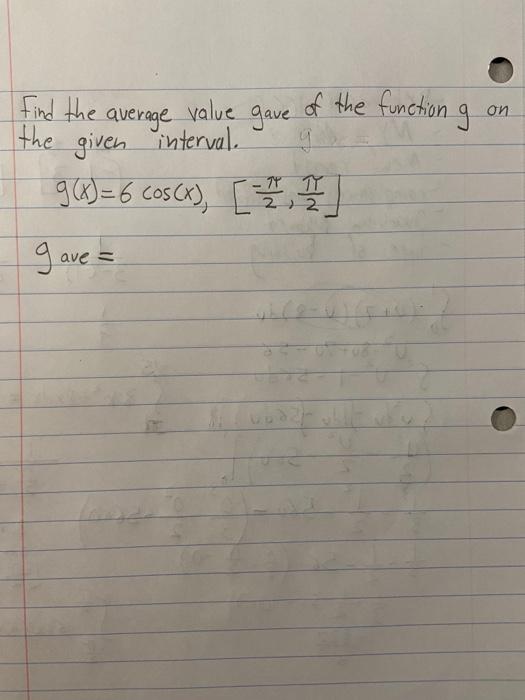 Find the average value gave of the function g on
the given interval.
g(x)=6 cos(x), [-π/2, π/2]
g ave =